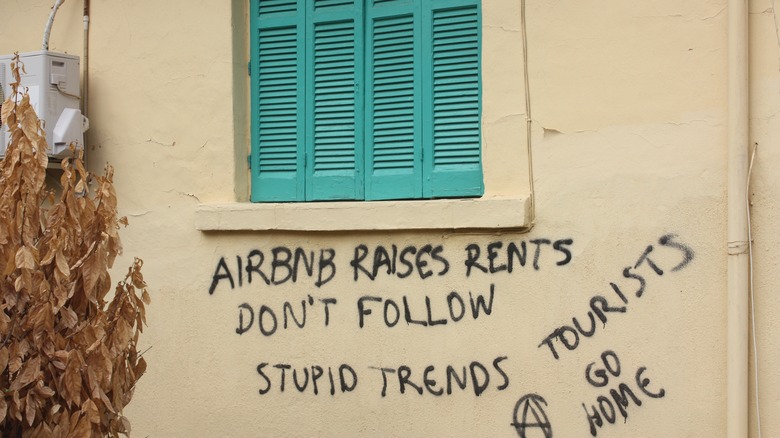 AIRBNB RAISES RENTS
DON'T FOLLOW
STUPID TRENDS
TOURISTS
GO
HOME